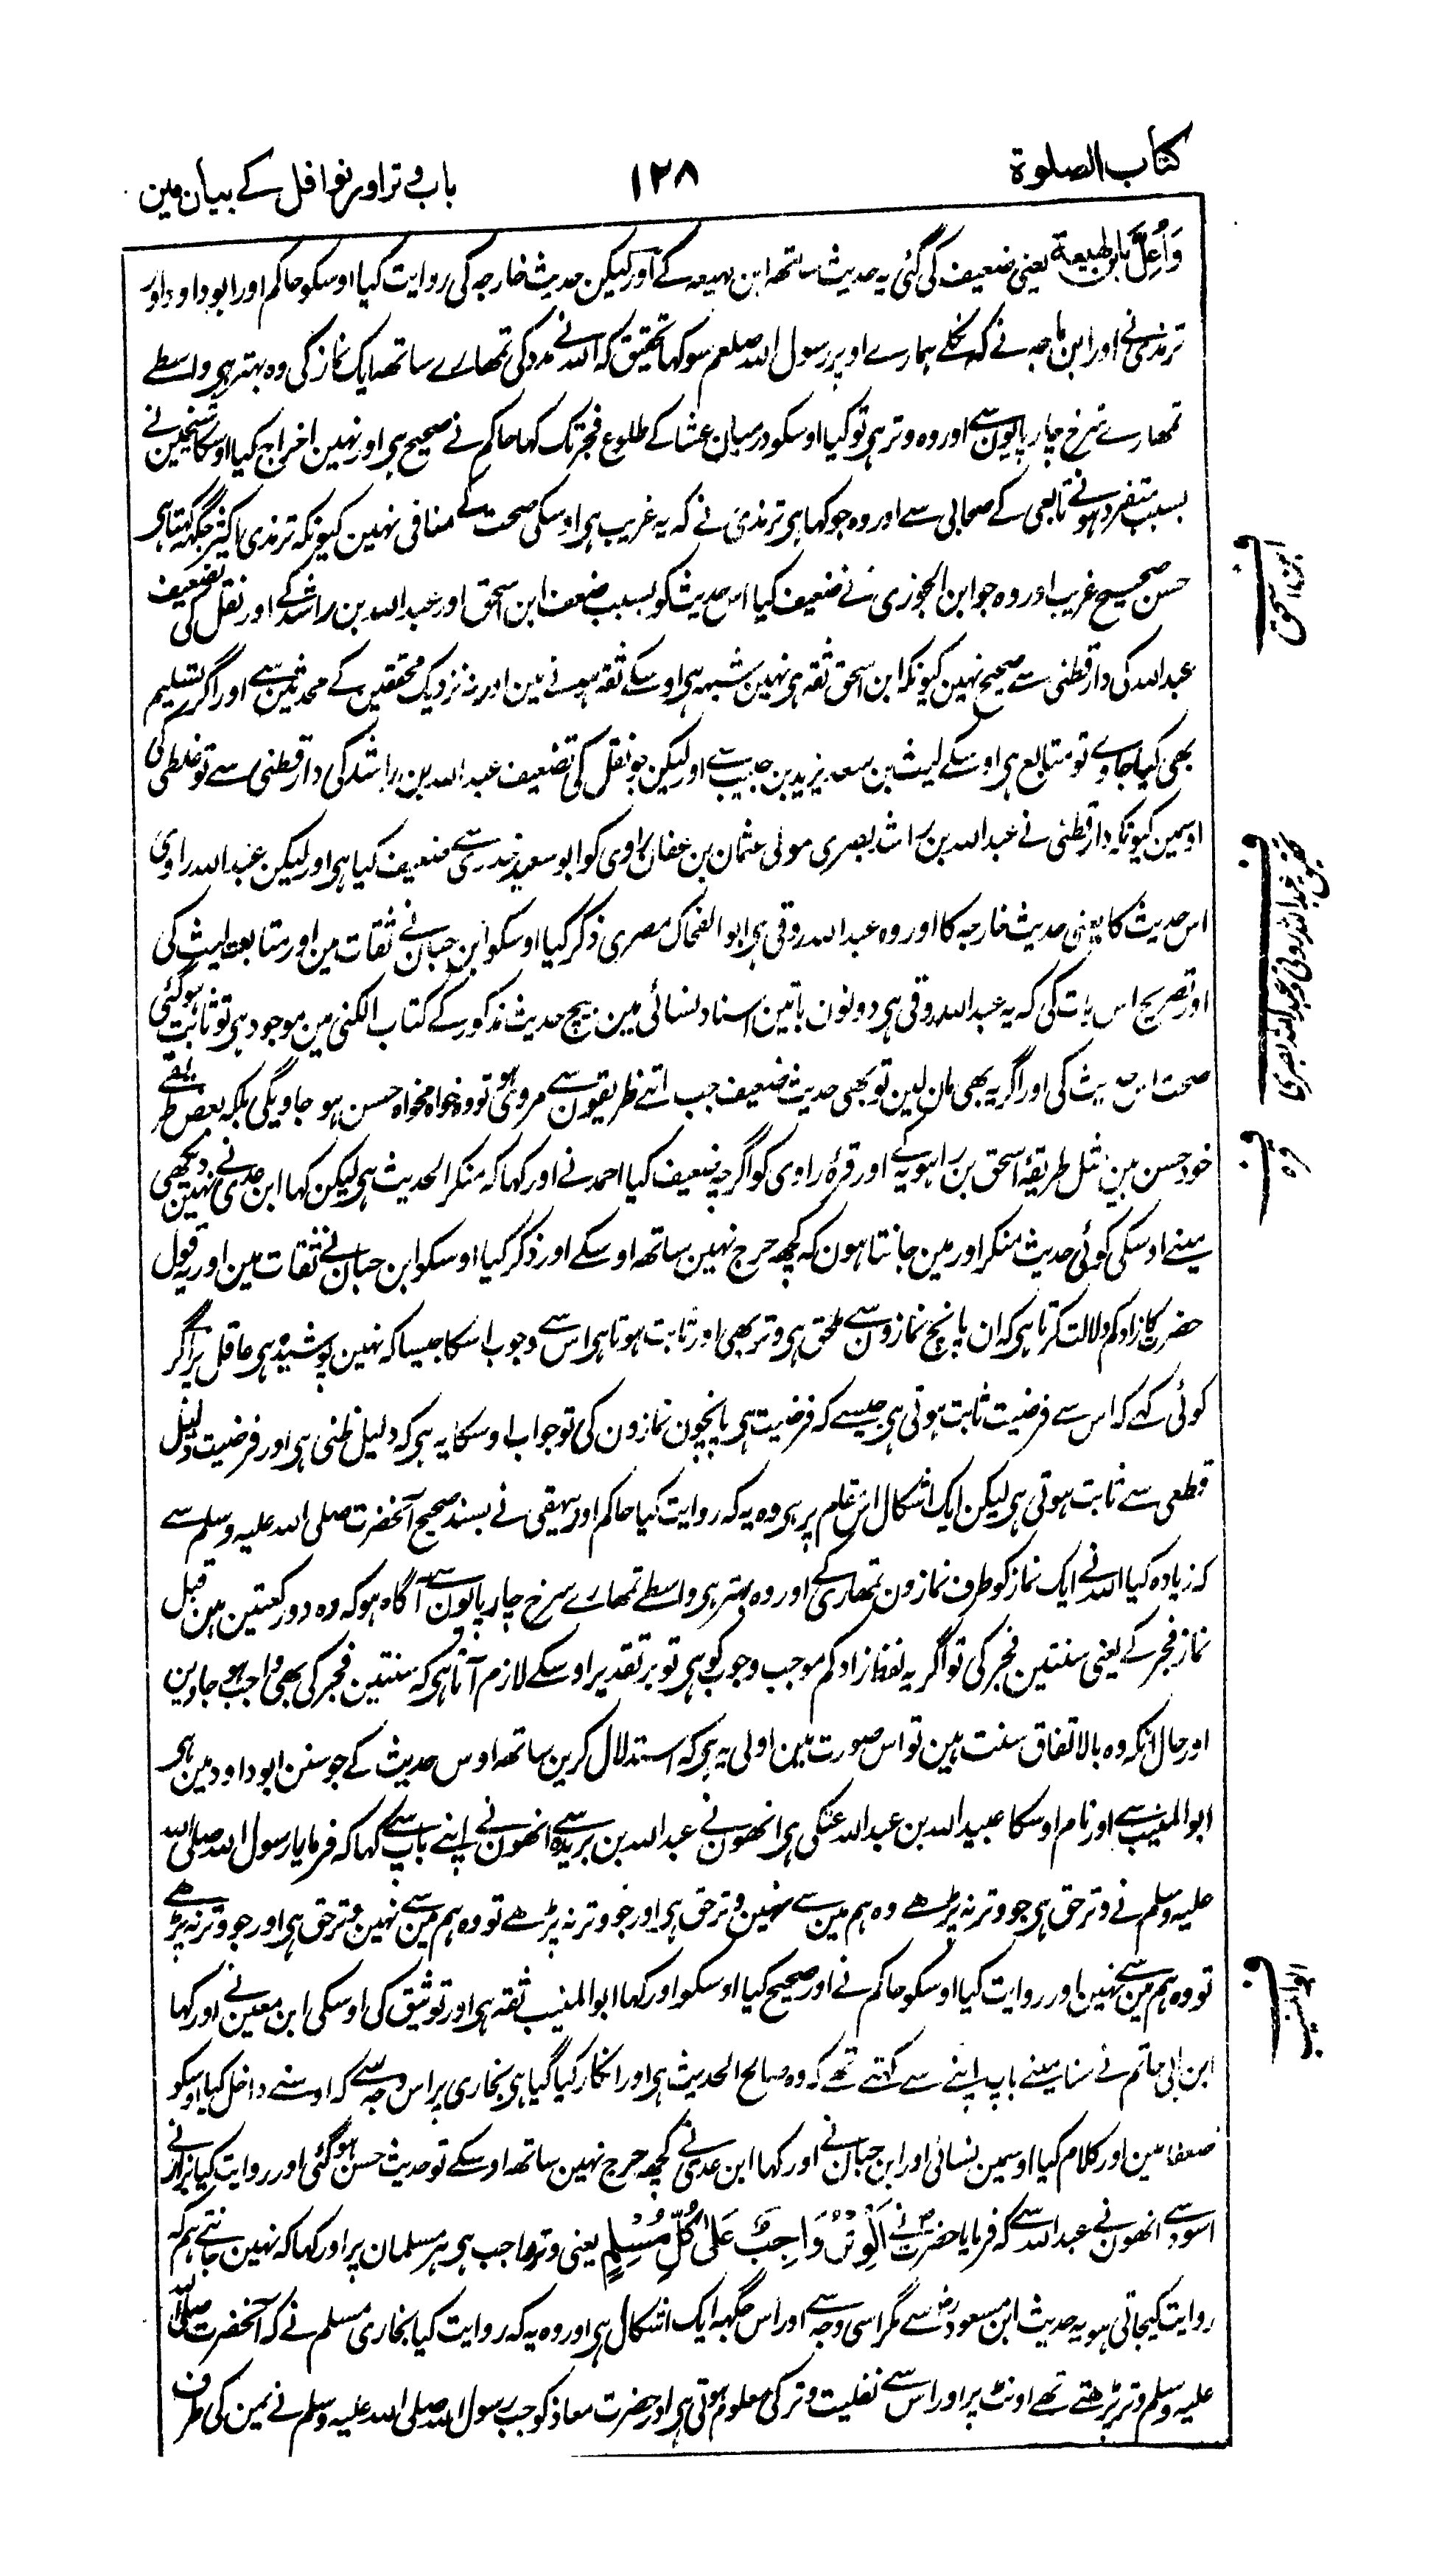 کتاب الصلوة
۱۲۸
باب وتر اور نوافل کے بیان مین
وَاُعِلَّ بابن لہیعۃ یعنی ضعیف کی گئی یہ حدیث ساتھ ابن لہیعہ کے اور لیکن حدیث خارجہ کی روایت کیا اوسکو حاکم اور ابو داود اور
ترمذی نے اور ابن ماجہ نے کہ نکلے ہمارے اوپر رسول اللہ صلعم سو کہا تحقیق کہ اللہ نے مدد کی تمھارے ساتھ ایک نماز کی وہ بہتر ہی واسطے
تمھارے سرخ چارپایون سے اور وہ وتر ہی تو کیا اوسکو درمیان عشا کے طلوع فجر تک کہا حاکم نے صحیح ہی اور نہین اخراج کیا اوسکا شیخین نے
بسبب متفرد ہونے تابعی کے صحابی سے اور وہ جو کہا ہی ترمذی نے کہ یہ غریب ہی اوسکی صحت کے منافی نہین کیونکہ ترمذی اکثر جگہہ کہتا ہی
حسن صحیح غریب اور وہ جو ابن الجوزی نے ضعیف کیا اس حدیث کو بسبب ضعف ابن اسحق اور عبد اللہ بن راشد کے اور نقل کی تضعیف
عبد اللہ کی دارقطنی سے صحیح نہین کیونکہ ابن اسحق ثقہ ہی نہین شبہہ ہی اوسکے ثقہ ہونے مین اور نہ نزدیک محققین کے محدثین سے اور اگر تسلیم
بھی کیا جاوے تو متابع ہی اوسکے لیث بن سعد یزید بن حبیب سے اور لیکن جو نقل کی تضعیف عبد اللہ بن راشد کی دارقطنی سے تو غلطی کی
اوسمین کیونکہ دارقطنی نے عبد اللہ بن راشد بصری مولی عثمان بن عفان راوی کو ابو سعید خدری سے ضعیف کیا ہی اور لیکن عبد اللہ راوی
اس حدیث کا یعنی حدیث خارجہ کا اور وہ عبد اللہ زوقی ہی ابو الضحاک مصری ذکر کیا اوسکو ابن حبان نے ثقات مین اور متابعت لیث کی
اور تصریح اس بات کی کہ یہ عبد اللہ زوقی ہی دونون باتین اسناد نسائی مین بیچ حدیث مذکور کے کتاب الکنی مین موجود ہی تو ثابت ہو گئی
صحت اس حدیث کی اور اگر یہ بھی مان لین تو بھی حدیث ضعیف جب اتنے طریقون سے مروی ہو تو وہ خواہ مخواہ حسن ہو جاویگی بلکہ بعض طریقے
خود حسن ہین مثل طریقۂ اسحق بن راہویہ کے اور قرۂ راوی کو اگرچہ ضعیف کیا احمد نے اور کہا کہ منکر الحدیث ہی لیکن کہا ابن عدی نے نہین دیکھی
مینے اوسکی کوئی حدیث منکر اور مین جانتا ہون کہ کچھ حرج نہین ساتھ اوسکے اور ذکر کیا اوسکو ابن حبان نے ثقات مین اور یہ قول
حضرت کا زادکم دلالت کرتا ہی کہ ان پانچ نمازون سے ملحق ہی وتر بھی اور ثابت ہوتا ہی اس سے وجوب اسکا جیسا کہ نہین پوشیدہ ہی عاقل پر اگر
کوئی کہے کہ اس سے فرضیت ثابت ہوتی ہی جیسے کہ فرضیت ہی پانچون نمازون کی تو جواب اوسکا یہ ہی کہ دلیل ظنی ہی اور فرضیت دلیل
قطعی سے ثابت ہوتی ہی لیکن ایک اشکال اس مقام پر ہی وہ یہ کہ روایت کیا حاکم اور بیہقی نے بسند صحیح آنحضرت صلی اللہ علیہ وسلم سے
کہ زیادہ کیا اللہ نے ایک نماز کو طرف نمازون تمھاری کے اور وہ بہتر ہی واسطے تمھارے سرخ چارپایون سے آگاہ ہو کہ وہ دو رکعتین ہین قبل
نماز فجر کے یعنی سنتین فجر کی تو اگر یہ لفظ زادکم موجب وجوب کو ہی تو بر تقدیر اوسکے لازم آتا ہی کہ سنتین فجر کی بھی واجب ہو جاوین
اور حال آنکہ وہ بالاتفاق سنت ہین تو اس صورت مین اولی یہ ہی کہ استدلال کرین ساتھ اوس حدیث کے جو سنن ابو داود مین ہی
ابو المنیب سے اور نام اوسکا عبید اللہ بن عبد اللہ عتکی ہی انھون نے عبد اللہ بن بریدہ سے انھون نے اپنے باپ سے کہا کہ فرمایا رسول اللہ صلی اللہ
علیہ وسلم نے وتر حق ہی جو وتر نہ پڑھے وہ ہم مین سے نہین وتر حق ہی اور جو وتر نہ پڑھے تو وہ ہم مین سے نہین وتر حق ہی اور جو وتر نہ پڑھے
تو وہ ہم مین سے نہین اور روایت کیا اوسکو حاکم نے اور صحیح کیا اوسکو اور کہا ابو المنیب ثقہ ہی اور توثیق کی اوسکی ابن معین نے اور کہا
ابن ابی حاتم نے سنا مینے باپ اپنے سے کہتے تھے کہ وہ صالح الحدیث ہی اور انکار کیا گیا ہی بخاری پر اس وجہ سے کہ اوسنے داخل کیا اوسکو
ضعفا مین اور کلام کیا اوسمین نسائی اور ابن حبان نے اور کہا ابن عدی نے کچھ حرج نہین ساتھ اوسکے تو حدیث حسن ہو گئی اور روایت کیا بزار نے
اسود سے انھون نے عبد اللہ سے کہ فرمایا حضرت نے اَلْوِتْرُ وَاجِبٌ عَلٰی کُلِّ مُسْلِمٍ یعنی وتر واجب ہی ہر مسلمان پر اور کہا کہ نہین جانتے ہم کہ
روایت کیجاتی ہو یہ حدیث ابن مسعود سے مگر اسی وجہ سے اور اس جگہہ ایک اشکال ہی اور وہ یہ کہ روایت کیا بخاری مسلم نے کہ آنحضرت صلی اللہ
علیہ وسلم وتر پڑھتے تھے اونٹ پر اور اس سے نفلیت وتر کی معلوم ہوتی ہی اور حضرت معاذ کو جب رسول اللہ صلی اللہ علیہ وسلم نے یمن کی طرف
ف
ابن اسحق
ف
تحقیق عبد اللہ زوقی و عبد اللہ بصری
ف
قرہ
ف
ابو المنیب